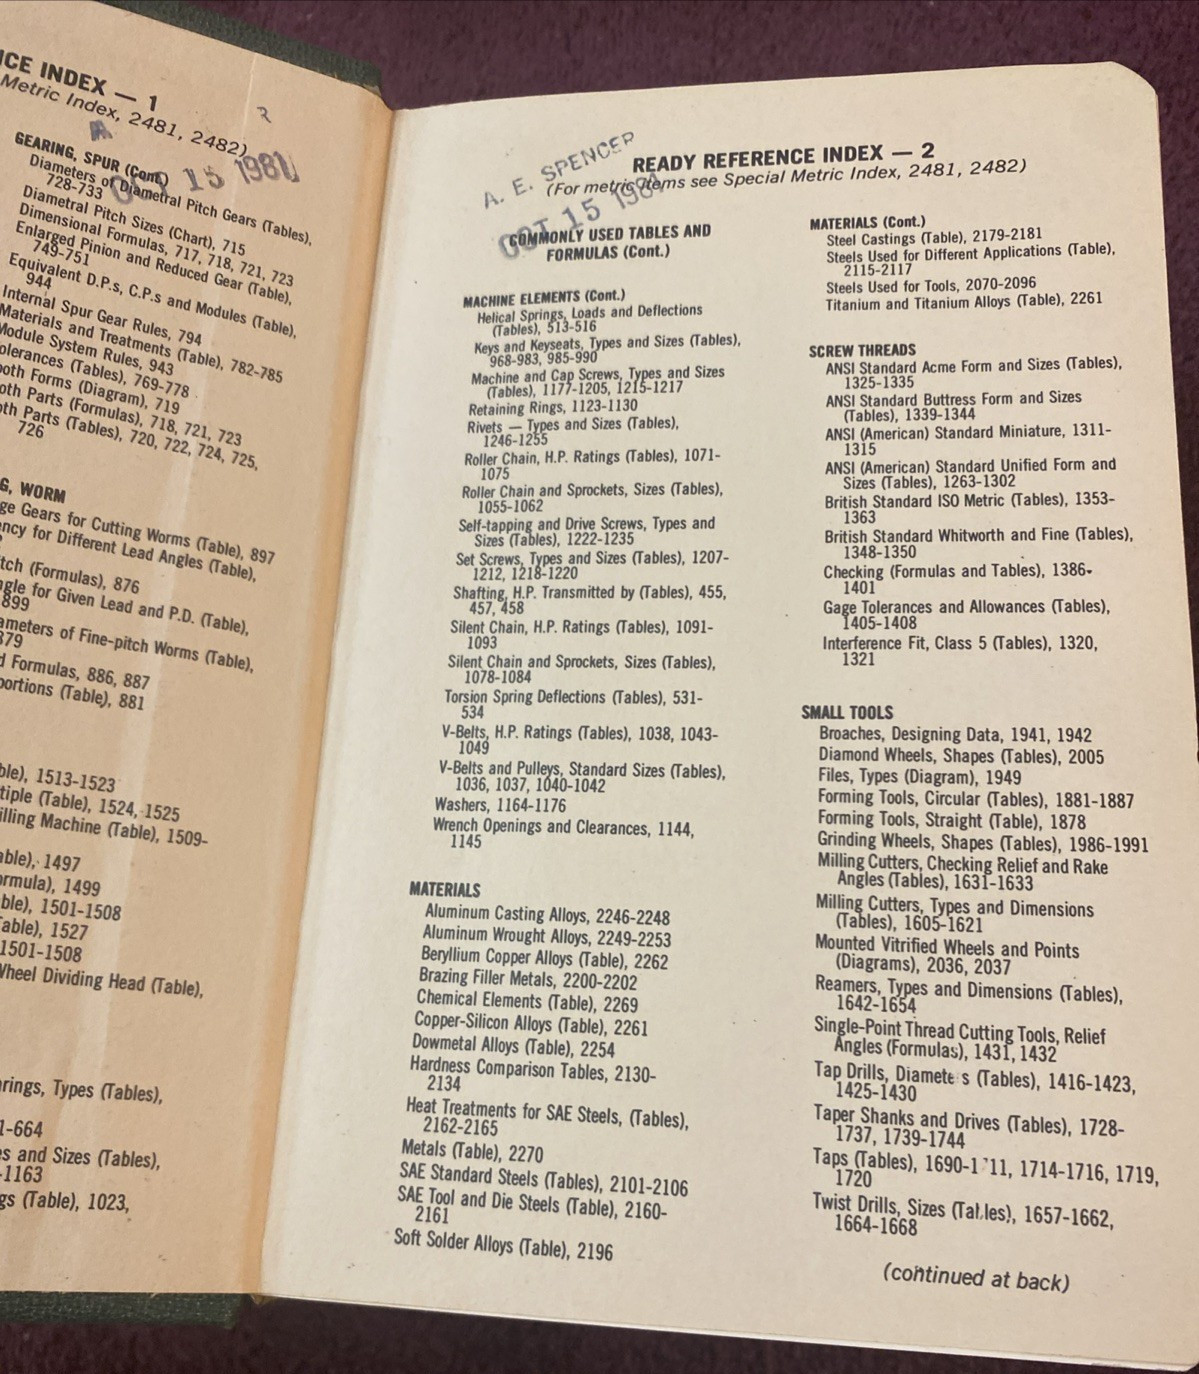 ICE INDEX — 1
Metric Index, 2481, 2482)
GEARING, SPUR (Cont.)
Diameters of Diametral Pitch Gears (Tables),
728-733
OCT 15 1981
Diametral Pitch Sizes (Chart), 715
Dimensional Formulas, 717, 718, 721, 723
Enlarged Pinion and Reduced Gear (Table),
749-751
Equivalent D.P.s, C.P.s and Modules (Table),
944
Internal Spur Gear Rules, 794
Materials and Treatments (Table), 782-785
Module System Rules, 943
olerances (Tables), 769-778
ooth Forms (Diagram), 719
oth Parts (Formulas), 718, 721, 723
th Parts (Tables), 720, 722, 724, 725,
726
G, WORM
ge Gears for Cutting Worms (Table), 897
ncy for Different Lead Angles (Table),
tch (Formulas), 876
ngle for Given Lead and P.D. (Table),
899
ameters of Fine-pitch Worms (Table),
879
d Formulas, 886, 887
portions (Table), 881
ble), 1513-1523
tiple (Table), 1524, 1525
illing Machine (Table), 1509-
able), 1497
ormula), 1499
ble), 1501-1508
able), 1527
1501-1508
Wheel Dividing Head (Table),
arings, Types (Tables),
1-664
es and Sizes (Tables),
-1163
gs (Table), 1023,
A. E. SPENCER
OCT 15 1981
READY REFERENCE INDEX — 2
(For metric items see Special Metric Index, 2481, 2482)
COMMONLY USED TABLES AND
FORMULAS (Cont.)
MACHINE ELEMENTS (Cont.)
Helical Springs, Loads and Deflections
(Tables), 513-516
Keys and Keyseats, Types and Sizes (Tables),
968-983, 985-990
Machine and Cap Screws, Types and Sizes
(Tables), 1177-1205, 1215-1217
Retaining Rings, 1123-1130
Rivets — Types and Sizes (Tables),
1246-1255
Roller Chain, H.P. Ratings (Tables), 1071-
1075
Roller Chain and Sprockets, Sizes (Tables),
1055-1062
Self-tapping and Drive Screws, Types and
Sizes (Tables), 1222-1235
Set Screws, Types and Sizes (Tables), 1207-
1212, 1218-1220
Shafting, H.P. Transmitted by (Tables), 455,
457, 458
Silent Chain, H.P. Ratings (Tables), 1091-
1093
Silent Chain and Sprockets, Sizes (Tables),
1078-1084
Torsion Spring Deflections (Tables), 531-
534
V-Belts, H.P. Ratings (Tables), 1038, 1043-
1049
V-Belts and Pulleys, Standard Sizes (Tables),
1036, 1037, 1040-1042
Washers, 1164-1176
Wrench Openings and Clearances, 1144,
1145
MATERIALS
Aluminum Casting Alloys, 2246-2248
Aluminum Wrought Alloys, 2249-2253
Beryllium Copper Alloys (Table), 2262
Brazing Filler Metals, 2200-2202
Chemical Elements (Table), 2269
Copper-Silicon Alloys (Table), 2261
Dowmetal Alloys (Table), 2254
Hardness Comparison Tables, 2130-
2134
Heat Treatments for SAE Steels, (Tables),
2162-2165
Metals (Table), 2270
SAE Standard Steels (Tables), 2101-2106
SAE Tool and Die Steels (Table), 2160-
2161
Soft Solder Alloys (Table), 2196
MATERIALS (Cont.)
Steel Castings (Table), 2179-2181
Steels Used for Different Applications (Table),
2115-2117
Steels Used for Tools, 2070-2096
Titanium and Titanium Alloys (Table), 2261
SCREW THREADS
ANSI Standard Acme Form and Sizes (Tables),
1325-1335
ANSI Standard Buttress Form and Sizes
(Tables), 1339-1344
ANSI (American) Standard Miniature, 1311-
1315
ANSI (American) Standard Unified Form and
Sizes (Tables), 1263-1302
British Standard ISO Metric (Tables), 1353-
1363
British Standard Whitworth and Fine (Tables),
1348-1350
Checking (Formulas and Tables), 1386-
1401
Gage Tolerances and Allowances (Tables),
1405-1408
Interference Fit, Class 5 (Tables), 1320,
1321
SMALL TOOLS
Broaches, Designing Data, 1941, 1942
Diamond Wheels, Shapes (Tables), 2005
Files, Types (Diagram), 1949
Forming Tools, Circular (Tables), 1881-1887
Forming Tools, Straight (Table), 1878
Grinding Wheels, Shapes (Tables), 1986-1991
Milling Cutters, Checking Relief and Rake
Angles (Tables), 1631-1633
Milling Cutters, Types and Dimensions
(Tables), 1605-1621
Mounted Vitrified Wheels and Points
(Diagrams), 2036, 2037
Reamers, Types and Dimensions (Tables),
1642-1654
Single-Point Thread Cutting Tools, Relief
Angles (Formulas), 1431, 1432
Tap Drills, Diamete s (Tables), 1416-1423,
1425-1430
Taper Shanks and Drives (Tables), 1728-
1737, 1739-1744
Taps (Tables), 1690-1711, 1714-1716, 1719,
1720
Twist Drills, Sizes (Tables), 1657-1662,
1664-1668
(continued at back)